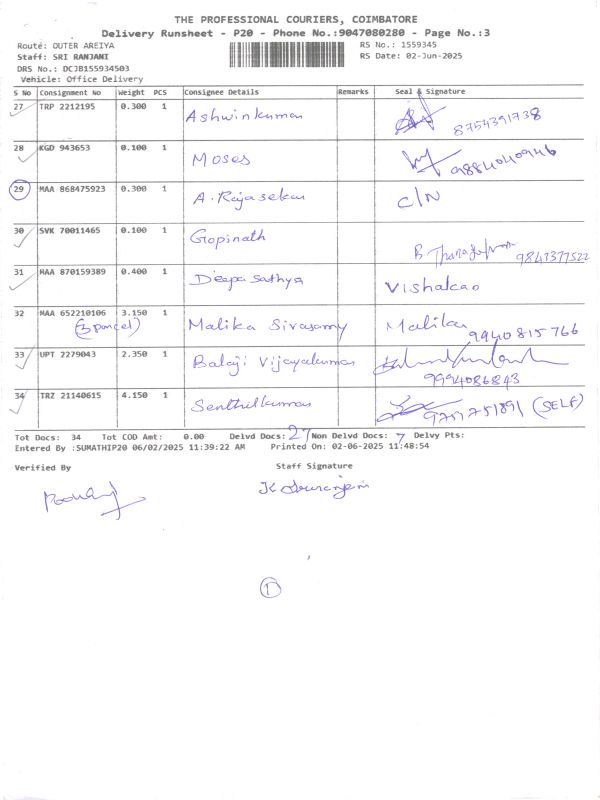 THE PROFESSIONAL COURIERS, COIMBATORE
Delivery Runsheet - P20 - Phone No.:9047080280 - Page No.:3
Route: OUTER AREIYA RS No.: 1559345
Staff: SRI RANJANI RS Date: 02-Jun-2025
DRS No.: DCJB155934503
Vehicle: Office Delivery
S No Consignment No Weight PCS Consignee Details Remarks Seal & Signature
27 TRP 2212195 0.300 1 Ashwinkumar 8754391738
28 KGD 943653 0.100 1 Moses 9884040946
29 MAA 868475923 0.300 1 A. Rajasekar C/N
30 SVK 70011465 0.100 1 Gopinath B 9843377522
31 MAA 870159389 0.400 1 Deepa Sathya Vishalcao
32 MAA 652210106 3.150 1 Malika Sivasamy Malika 9940815766
(3 parcel)
33 UPT 2279043 2.350 1 Balaji Vijayakumar
9994086843
34 TRZ 21140615 4.150 1 Senthilkumar 9751751891 (SELF)
Tot Docs: 34 Tot COD Amt: 0.00 Delvd Docs: 27 Non Delvd Docs: 7 Delvy Pts:
Entered By :SUMATHIP20 06/02/2025 11:39:22 AM Printed On: 02-06-2025 11:48:54
Verified By Staff Signature
1